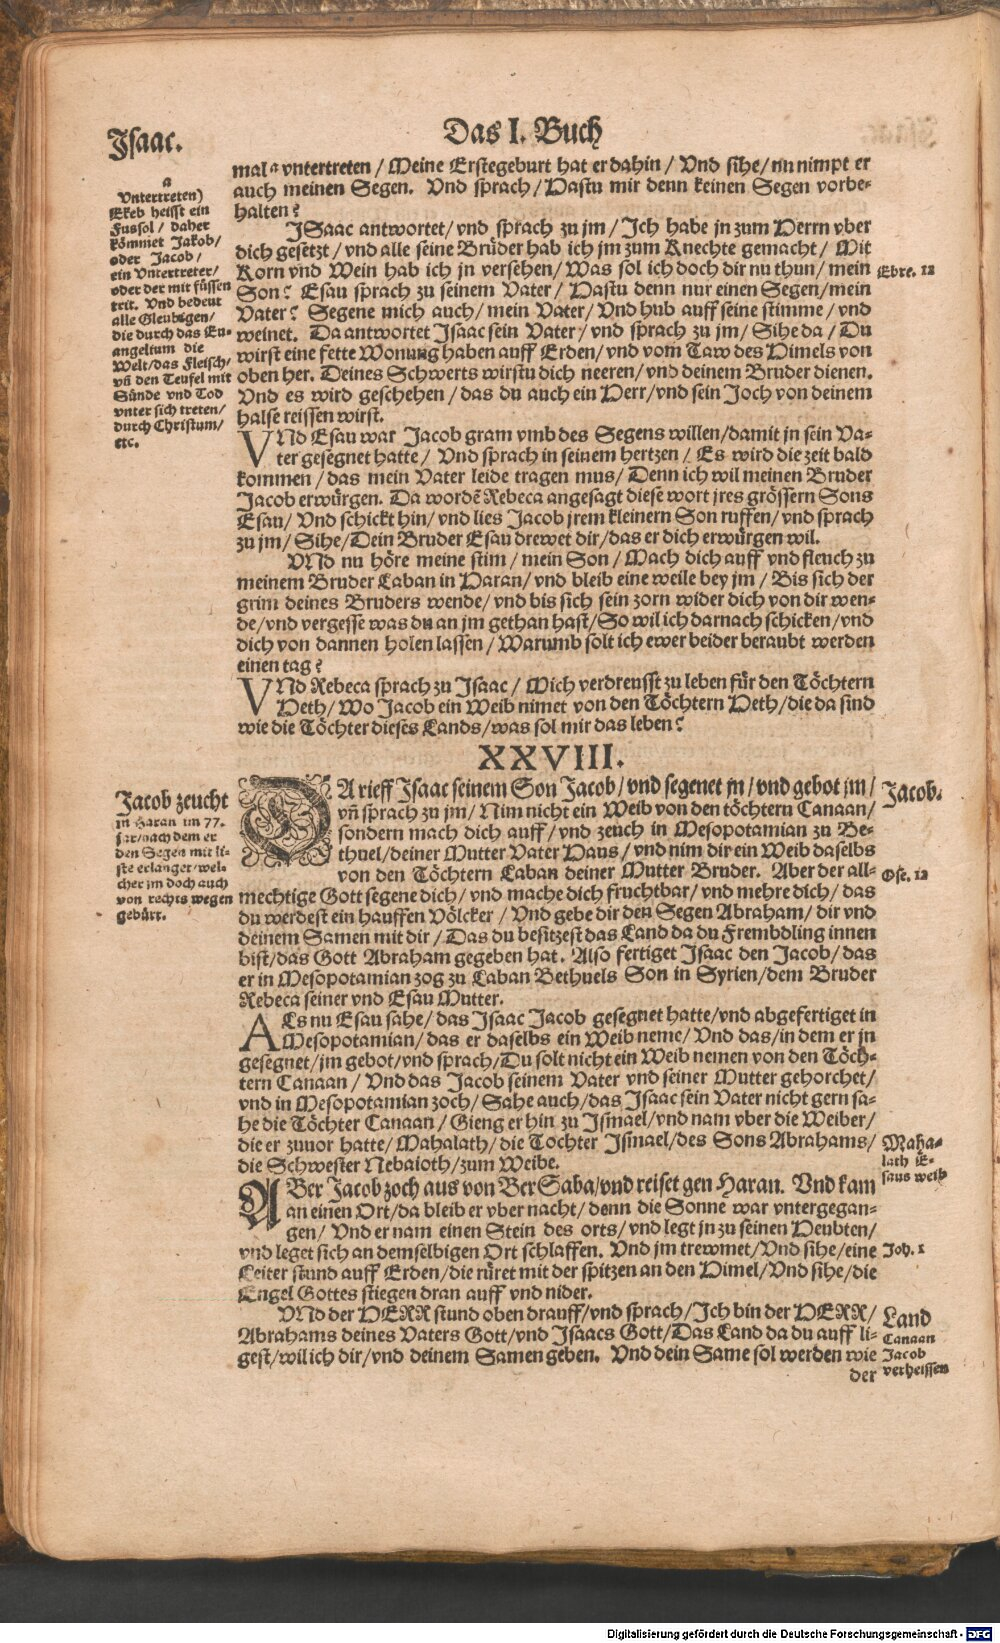 Isaac.
Das I. Buch
mal a vntertreten / Meine Erstegeburt hat er dahin / Vnd sihe / nu nimpt er
auch meinen Segen. Vnd sprach / Hastu mir denn keinen Segen vorbe-
halten?
ISaac antwortet / vnd sprach zu jm / Ich habe jn zum Herrn vber
dich gesetzt / vnd alle seine Brüder hab ich jm zum Knechte gemacht / Mit
Korn vnd Wein hab ich jn versehen / Was sol ich doch dir nu thun / mein
Son? Esau sprach zu seinem Vater / Hastu denn nur einen Segen / mein
Vater? Segene mich auch / mein Vater / Vnd hub auff seine stimme / vnd
weinet. Da antwortet Isaac sein Vater / vnd sprach zu jm / Sihe da / Du
wirst eine fette Wonung haben auff Erden / vnd vom Taw des Himels von
oben her. Deines Schwerts wirstu dich neeren / vnd deinem Bruder dienen.
Vnd es wird geschehen / das du auch ein Herr / vnd sein Joch von deinem
halse reissen wirst.
VNd Esau war Jacob gram vmb des Segens willen / damit jn sein Va-
ter gesegnet hatte / Vnd sprach in seinem hertzen / Es wird die zeit bald
kommen / das mein Vater leide tragen mus / Denn ich wil meinen Bruder
Jacob erwürgen. Da wordē Rebeca angesagt diese wort jres grössern Sons
Esau / Vnd schickt hin / vnd lies Jacob jrem kleinern Son ruffen / vnd sprach
zu jm / Sihe / Dein Bruder Esau drewet dir / das er dich erwürgen wil.
VNd nu höre meine stim / mein Son / Mach dich auff vnd fleuch zu
meinem Bruder Laban in Haran / vnd bleib eine weile bey jm / Bis sich der
grim deines Bruders wende / vnd bis sich sein zorn wider dich von dir wen-
de / vnd vergesse was du an jm gethan hast / So wil ich darnach schicken / vnd
dich von dannen holen lassen / Warumb solt ich ewer beider beraubt werden
einen tag?
VNd Rebeca sprach zu Isaac / Mich verdreusst zu leben für den Töchtern
Heth / Wo Jacob ein Weib nimet von den Töchtern Heth / die da sind
wie die Töchter dieses Lands / was sol mir das leben?
a
Vntertreten)
Ekeb heisst ein
Fussol / daher
kömmet Jakob /
oder Jacob /
ein Vntertreter /
oder der mit füssen
trit. Vnd bedeut
alle Gleubigen /
die durch das Eu-
angelium die
Welt / das Fleisch /
vñ den Teufel mit
Sünde vnd Tod
vnter sich treten /
durch Christum /
etc.
Ebre. 12
XXVIII.
DA rieff Isaac seinem Son Jacob / vnd segenet jn / vnd gebot jm /
vñ sprach zu jm / Nim nicht ein Weib von den töchtern Canaan /
sondern mach dich auff / vnd zeuch in Mesopotamian zu Be-
thuel / deiner Mutter Vater Haus / vnd nim dir ein Weib daselbs
von den Töchtern Laban deiner Mutter Bruder. Aber der all-
mechtige Gott segene dich / vnd mache dich fruchtbar / vnd mehre dich / das
du werdest ein hauffen Völcker / Vnd gebe dir den Segen Abraham / dir vnd
deinem Samen mit dir / Das du besitzest das Land da du Frembdling innen
bist / das Gott Abraham gegeben hat. Also fertiget Isaac den Jacob / das
er in Mesopotamian zog zu Laban Bethuels Son in Syrien / dem Bruder
Rebeca seiner vnd Esau Mutter.
ALs nu Esau sahe / das Isaac Jacob gesegnet hatte / vnd abgefertiget in
Mesopotamian / das er daselbs ein Weib neme / Vnd das / in dem er jn
gesegnet / jm gebot / vnd sprach / Du solt nicht ein Weib nemen von den Töch-
tern Canaan / Vnd das Jacob seinem Vater vnd seiner Mutter gehorchet /
vnd in Mesopotamian zoch / Sahe auch / das Isaac sein Vater nicht gern sa-
he die Töchter Canaan / Gieng er hin zu Ismael / vnd nam vber die Weiber /
die er zuuor hatte / Mahalath / die Tochter Ismael / des Sons Abrahams /
die Schwester Nebaioth / zum Weibe.
ABer Jacob zoch aus von BerSaba / vnd reiset gen Haran. Vnd kam
an einen Ort / da bleib er vber nacht / denn die Sonne war vntergegan-
gen / Vnd er nam einen Stein des orts / vnd legt jn zu seinen Heubten /
vnd leget sich an demselbigen Ort schlaffen. Vnd jm trewmet / Vnd sihe / eine
Leiter stund auff Erden / die rüret mit der spitzen an den Himel / Vnd sihe / die
Engel Gottes stiegen dran auff vnd nider.
VNd der HERR stund oben drauff / vnd sprach / Ich bin der HERR /
Abrahams deines Vaters Gott / vnd Isaacs Gott / Das Land da du auff li-
gest / wil ich dir / vnd deinem Samen geben. Vnd dein Same sol werden wie
der
Jacob zeucht
in Haran im 77.
jar / nach dem er
den Segen mit li-
ste erlanget / wel-
cher jm doch auch
von rechts wegen
gebürt.
Jacob.
Ose. 12
Maha-
lath E-
saus weib
Joh. 1
Land
Canaan
Jacob
verheissen
Digitalisierung gefördert durch die Deutsche Forschungsgemeinschaft - DFG